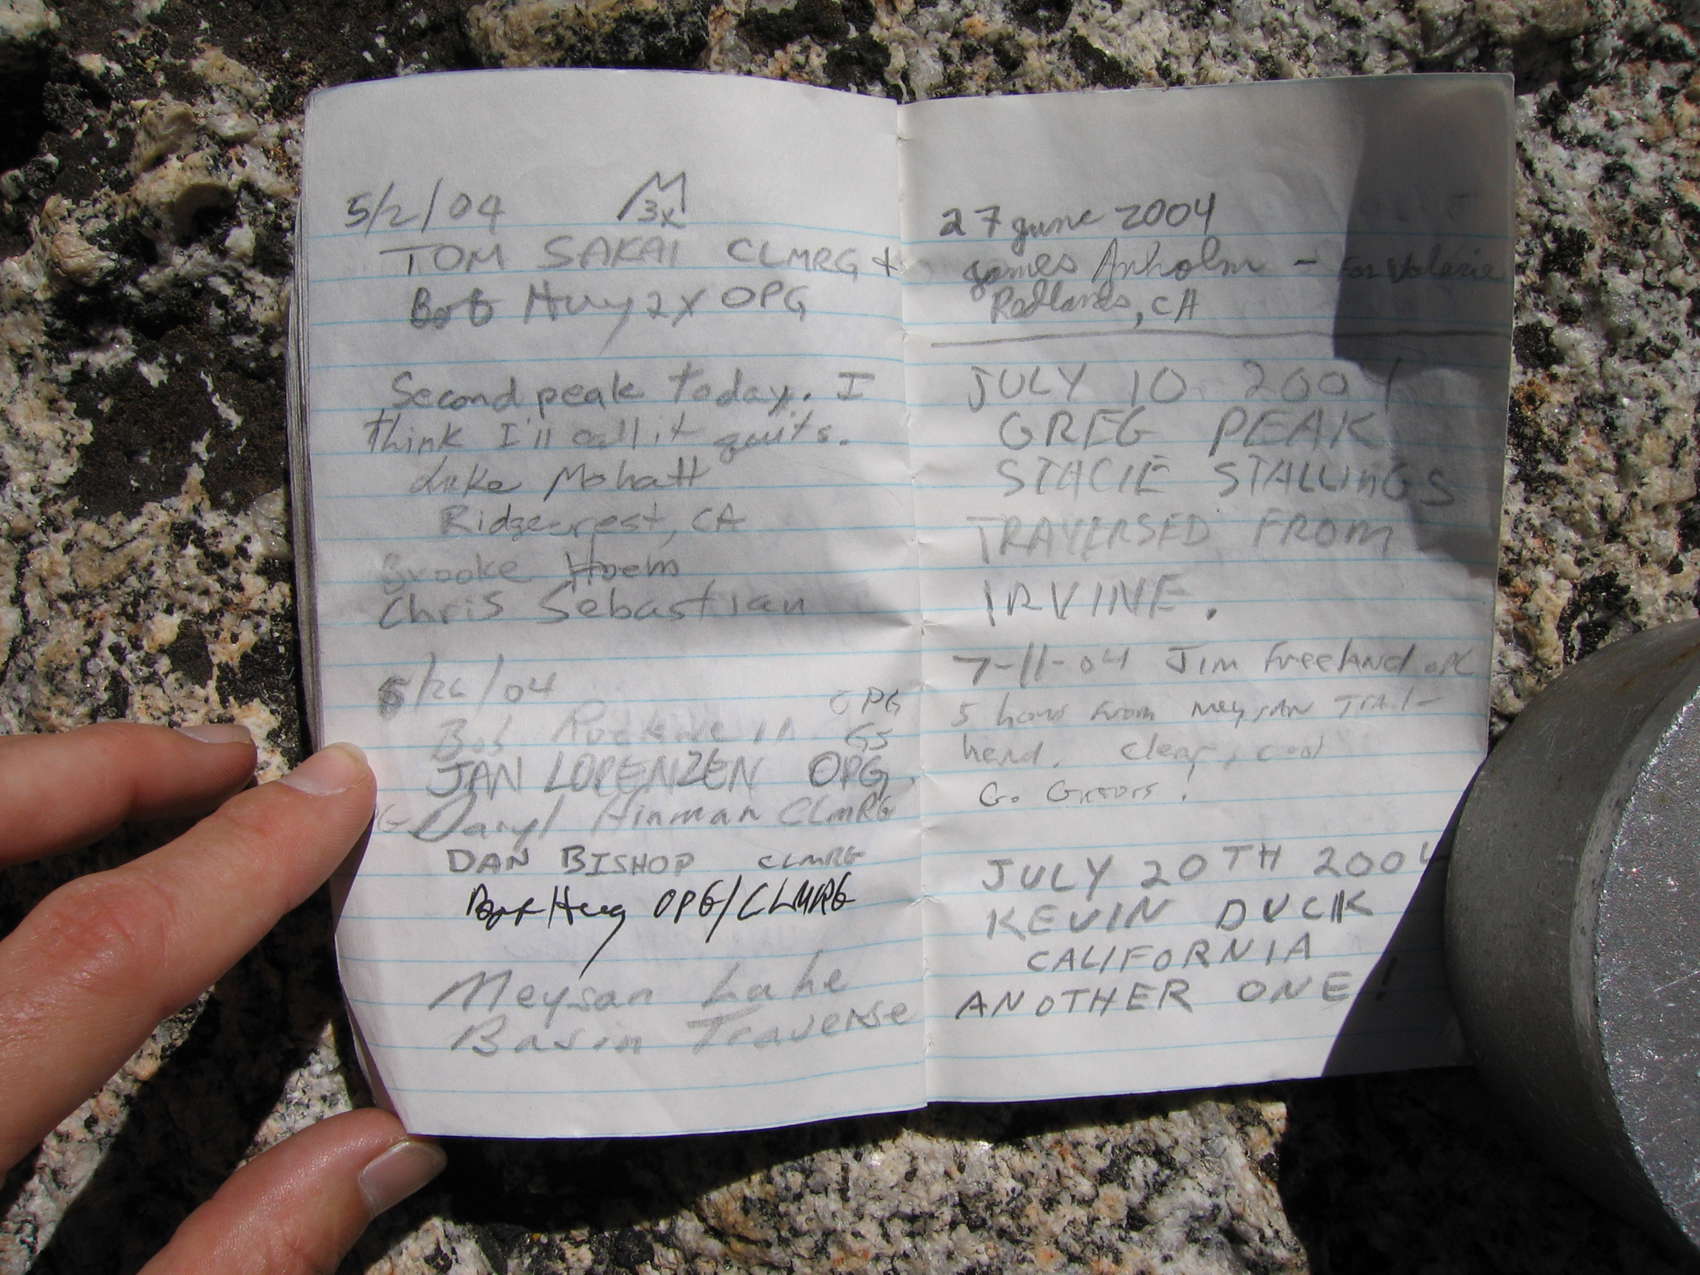 5/2/04
3x
TOM SAKAI CLMRG +
Bob Huey 2x OPG
Second peak today. I
think I'll call it quits.
Luke Mohatt
Ridgecrest, CA
Brooke Hoem
Chris Sebastian
/26/04
OPG
Bob GS
JAN LORENZEN OPG,
Daryl Hinman CLMRG
DAN BISHOP CLMRG
OPG/CLMRG
Meysan Lake
Basin Traverse
27 June 2004
James Anholm - For Valerie
Redlands, CA
JULY 10 2004
GREG PEAK
STACIE STALLINGS
TRAVERSED FROM
IRVINE.
7-11-04 Jim Freeland
5 hours from Meysan Trail-
head. clear, cool
Go
JULY 20TH 2004
KEVIN DUCK
CALIFORNIA
ANOTHER ONE!